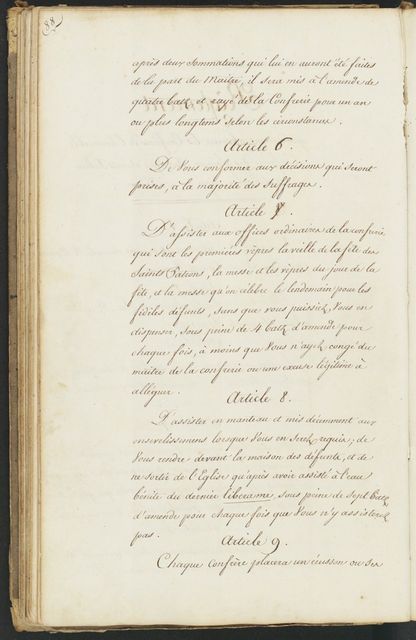 88
après deux sommations qui lui en auront été faites
de la part du Maitre, il sera mis à l'amende de
quatre batz et rayé de la Confrerie pour un an
ou plus longtems selon les circonstances.
Article 6.
De Vous conformer aux décisions qui seront
prises, à la majorité des suffrages.
Article 7.
D'assister aux offices ordinaires de la confrerie
qui sont les premières vêpres la veille de la fête des
Saints Patrons, la messe et les vêpres du jour de la
fête, et la messe qu'on célèbre le lendemain pour les
fidèles défunts, sans que vous puissiez Vous en
dispenser, sous peine de 4 batz d'amende pour
chaque fois, à moins que Vous n'ayez congé du
maitre de la confrerie ou une excuse légitime à
alléguer.
Article 8.
D'assister en manteau et mis décemment aux
ensevelissemens lorsque Vous en serez requis; de
Vous rendre devant la maison des défunts, et de
ne sortir de l'Eglise qu'après avoir assisté à l'eau
bénite du dernier libera me, sous peine de sept batz
d'amende pour chaque fois que Vous n'y assisterez
pas.
Article 9.
Chaque Confrère placera un écusson ou ses